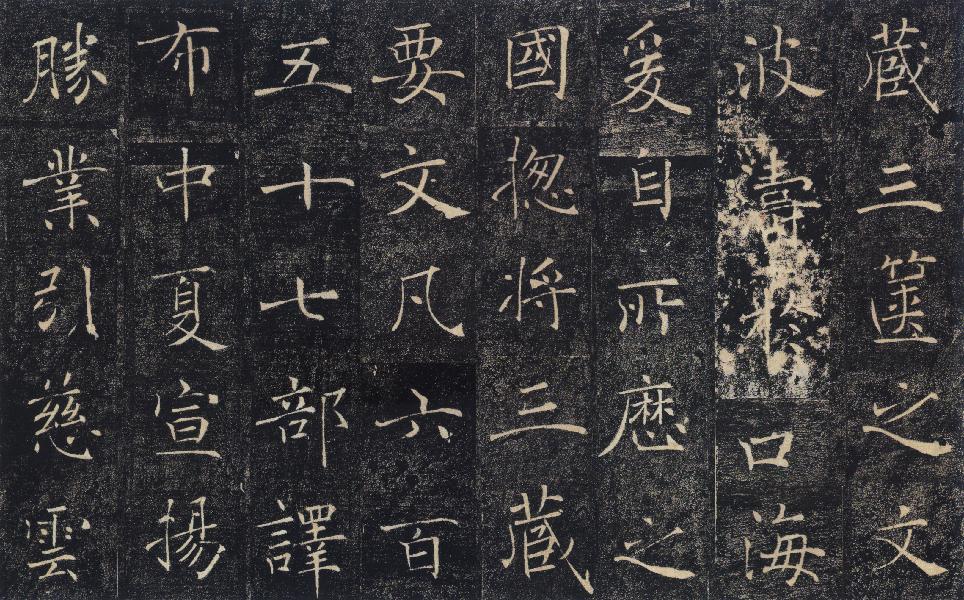 藏三篋之文
波濤於口海
爰自所歷之
國揔將三藏
要文凡六百
五十七部譯
布中夏宣揚
勝業引慈雲